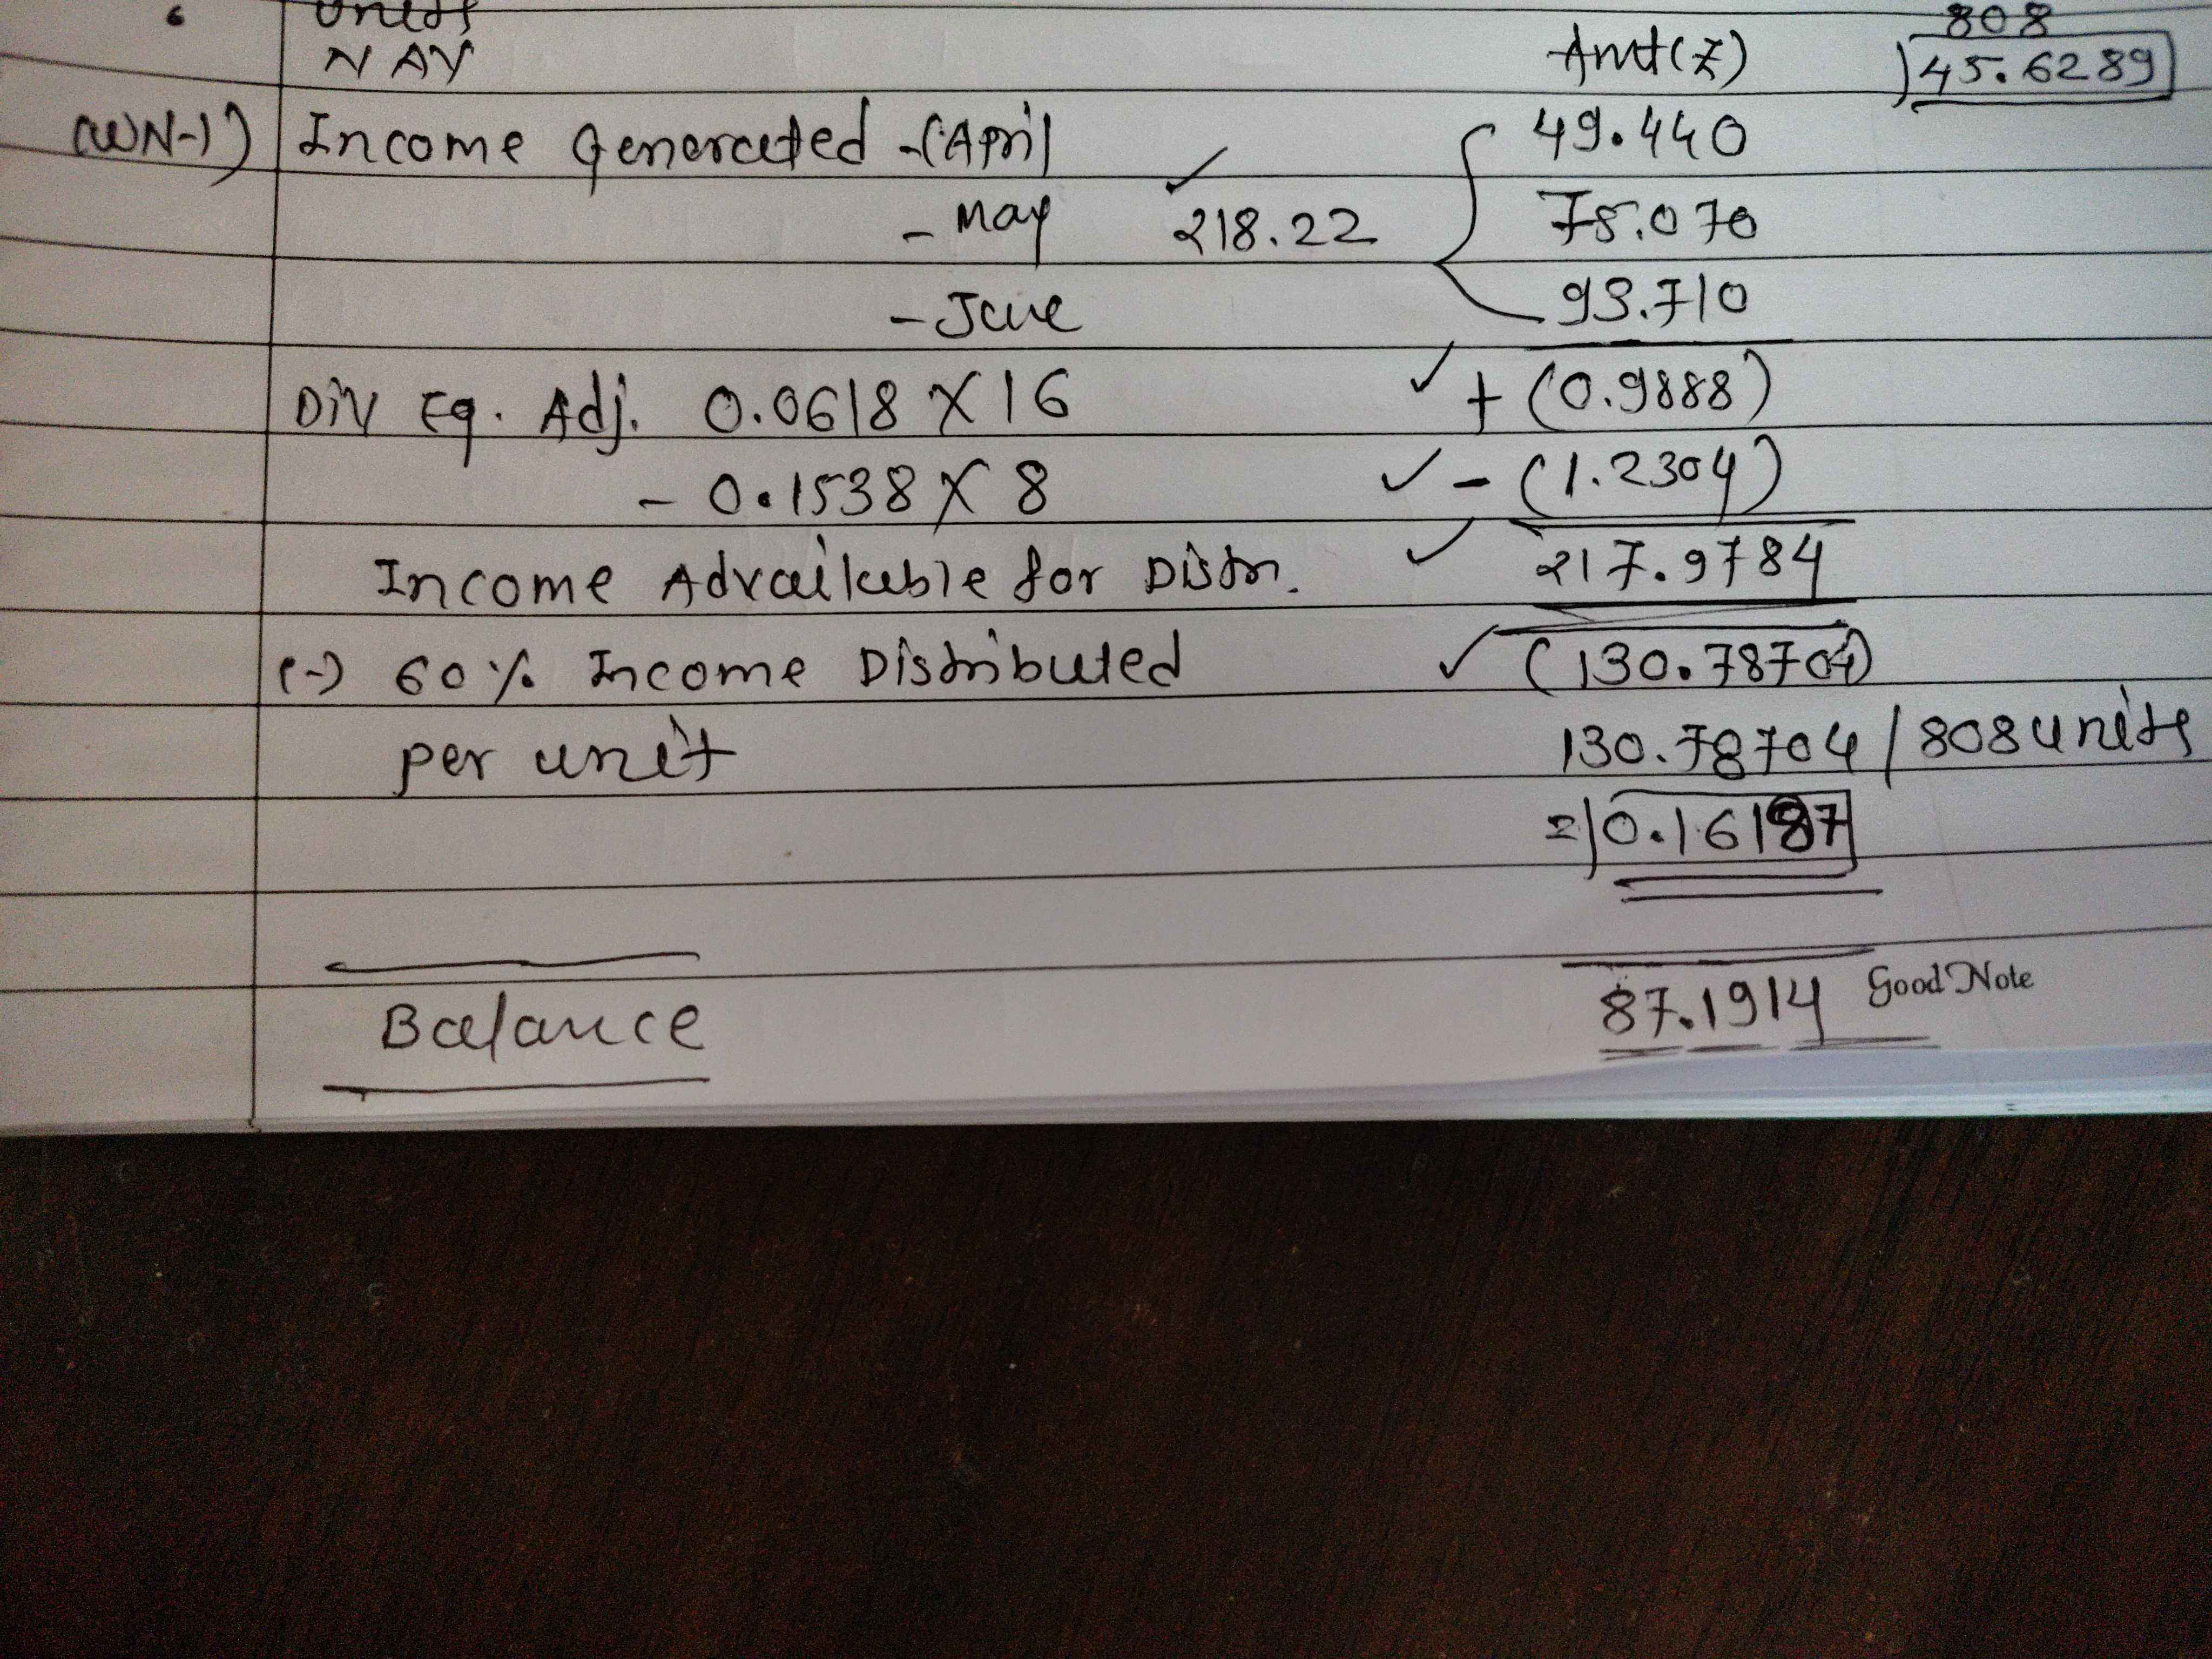 Units 808
NAV Amt(₹) 45.6289
(WN-1) Income Generated -(April 49.440
- May 218.22 75.070
- June 93.710
Div Eq. Adj. 0.0618 X 16 + (0.9888)
- 0.1538 X 8 - (1.2304)
Income Advailable for Distn. 217.9784
(-) 60% Income Distributed (130.78704)
per unit 130.78704 / 808 units
= 0.16187
Balance 87.1914
Good Note